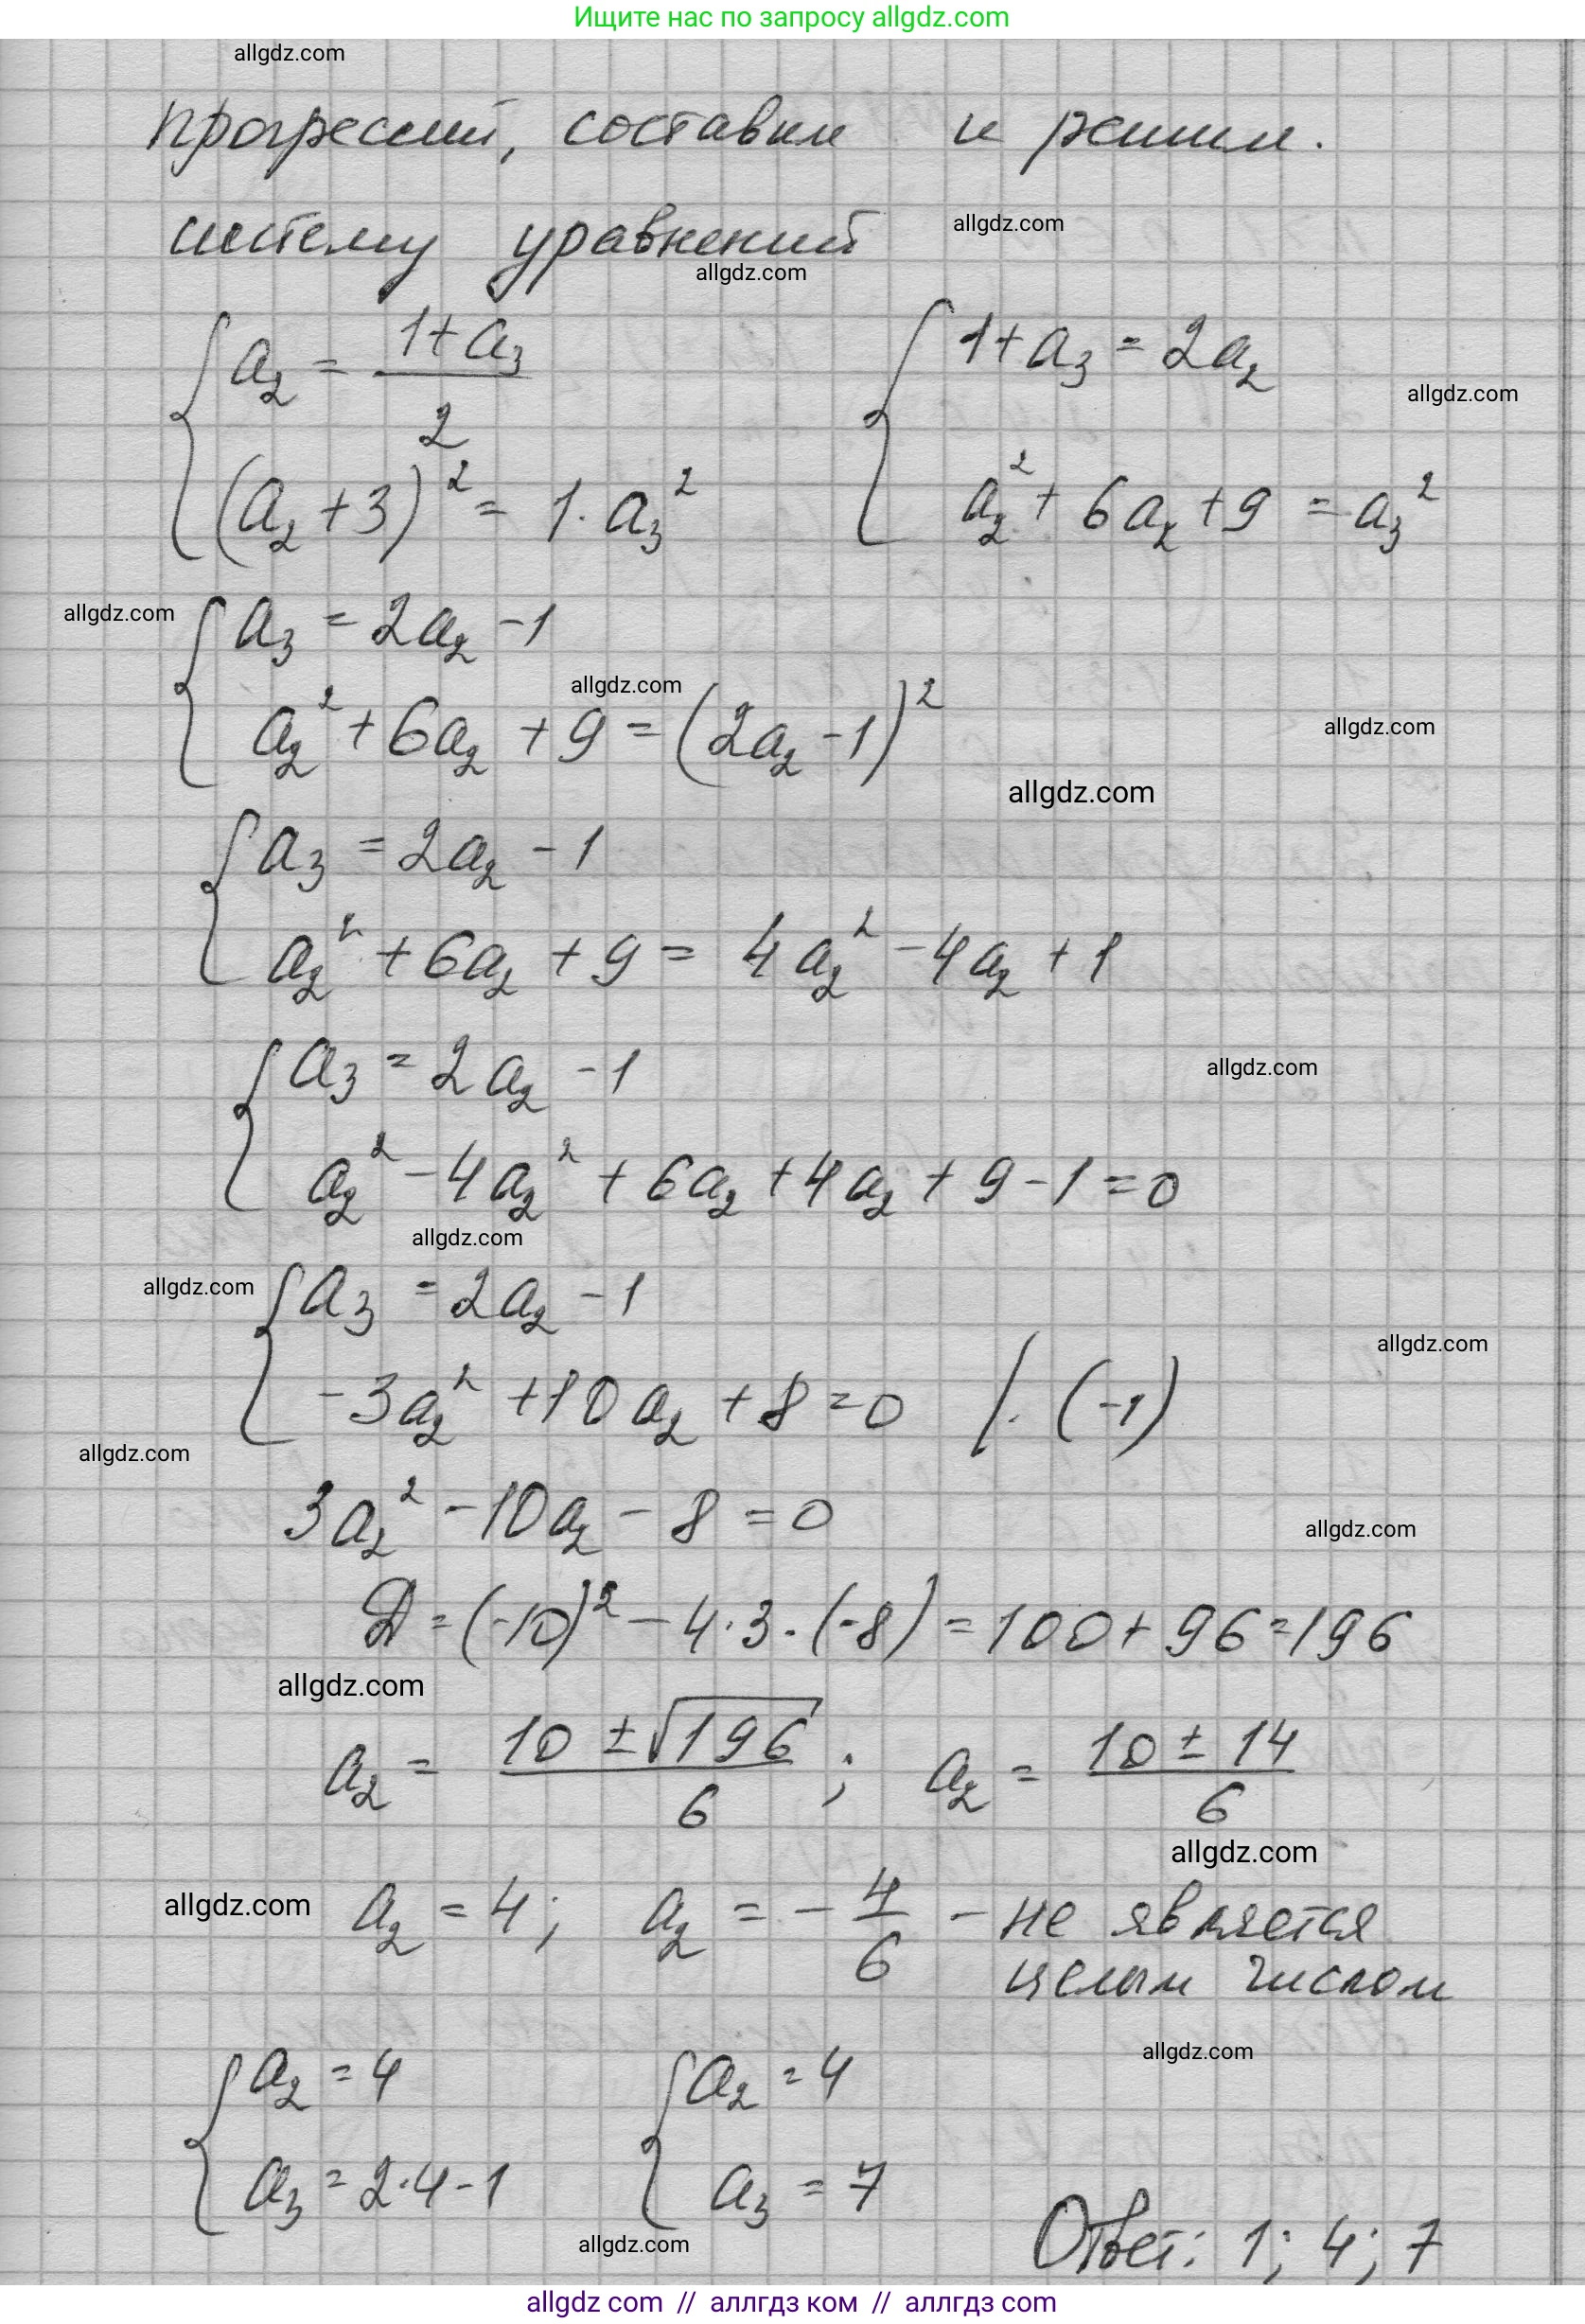 Ищите нас по запросу allgdz.com
allgdz.com
прогрессий, составим и решим.
систему уравнений
allgdz.com
allgdz.com
{ a₂ = (1+a₃)/2 { 1+a₃ = 2a₂
allgdz.com
(a₂+3)² = 1·a₃² a₂² + 6a₂ + 9 = a₃²
allgdz.com
{ a₃ = 2a₂ - 1
allgdz.com
a₂² + 6a₂ + 9 = (2a₂ - 1)²
allgdz.com
allgdz.com
{ a₃ = 2a₂ - 1
a₂² + 6a₂ + 9 = 4a₂² - 4a₂ + 1
{ a₃ = 2a₂ - 1
allgdz.com
a₂² - 4a₂² + 6a₂ + 4a₂ + 9 - 1 = 0
allgdz.com
allgdz.com
{ a₃ = 2a₂ - 1
allgdz.com
-3a₂² + 10a₂ + 8 = 0 /·(-1)
allgdz.com
3a₂² - 10a₂ - 8 = 0
allgdz.com
D = (-10)² - 4·3·(-8) = 100 + 96 = 196
allgdz.com
a₂ = (10 ± √196)/6 ; a₂ = (10 ± 14)/6
allgdz.com
allgdz.com
a₂ = 4; a₂ = -4/6 - не является
целым числом
allgdz.com
{ a₂ = 4 { a₂ = 4
a₃ = 2·4-1 a₃ = 7
allgdz.com
Ответ: 1; 4; 7
allgdz.com // аллгдз ком // аллгдз com